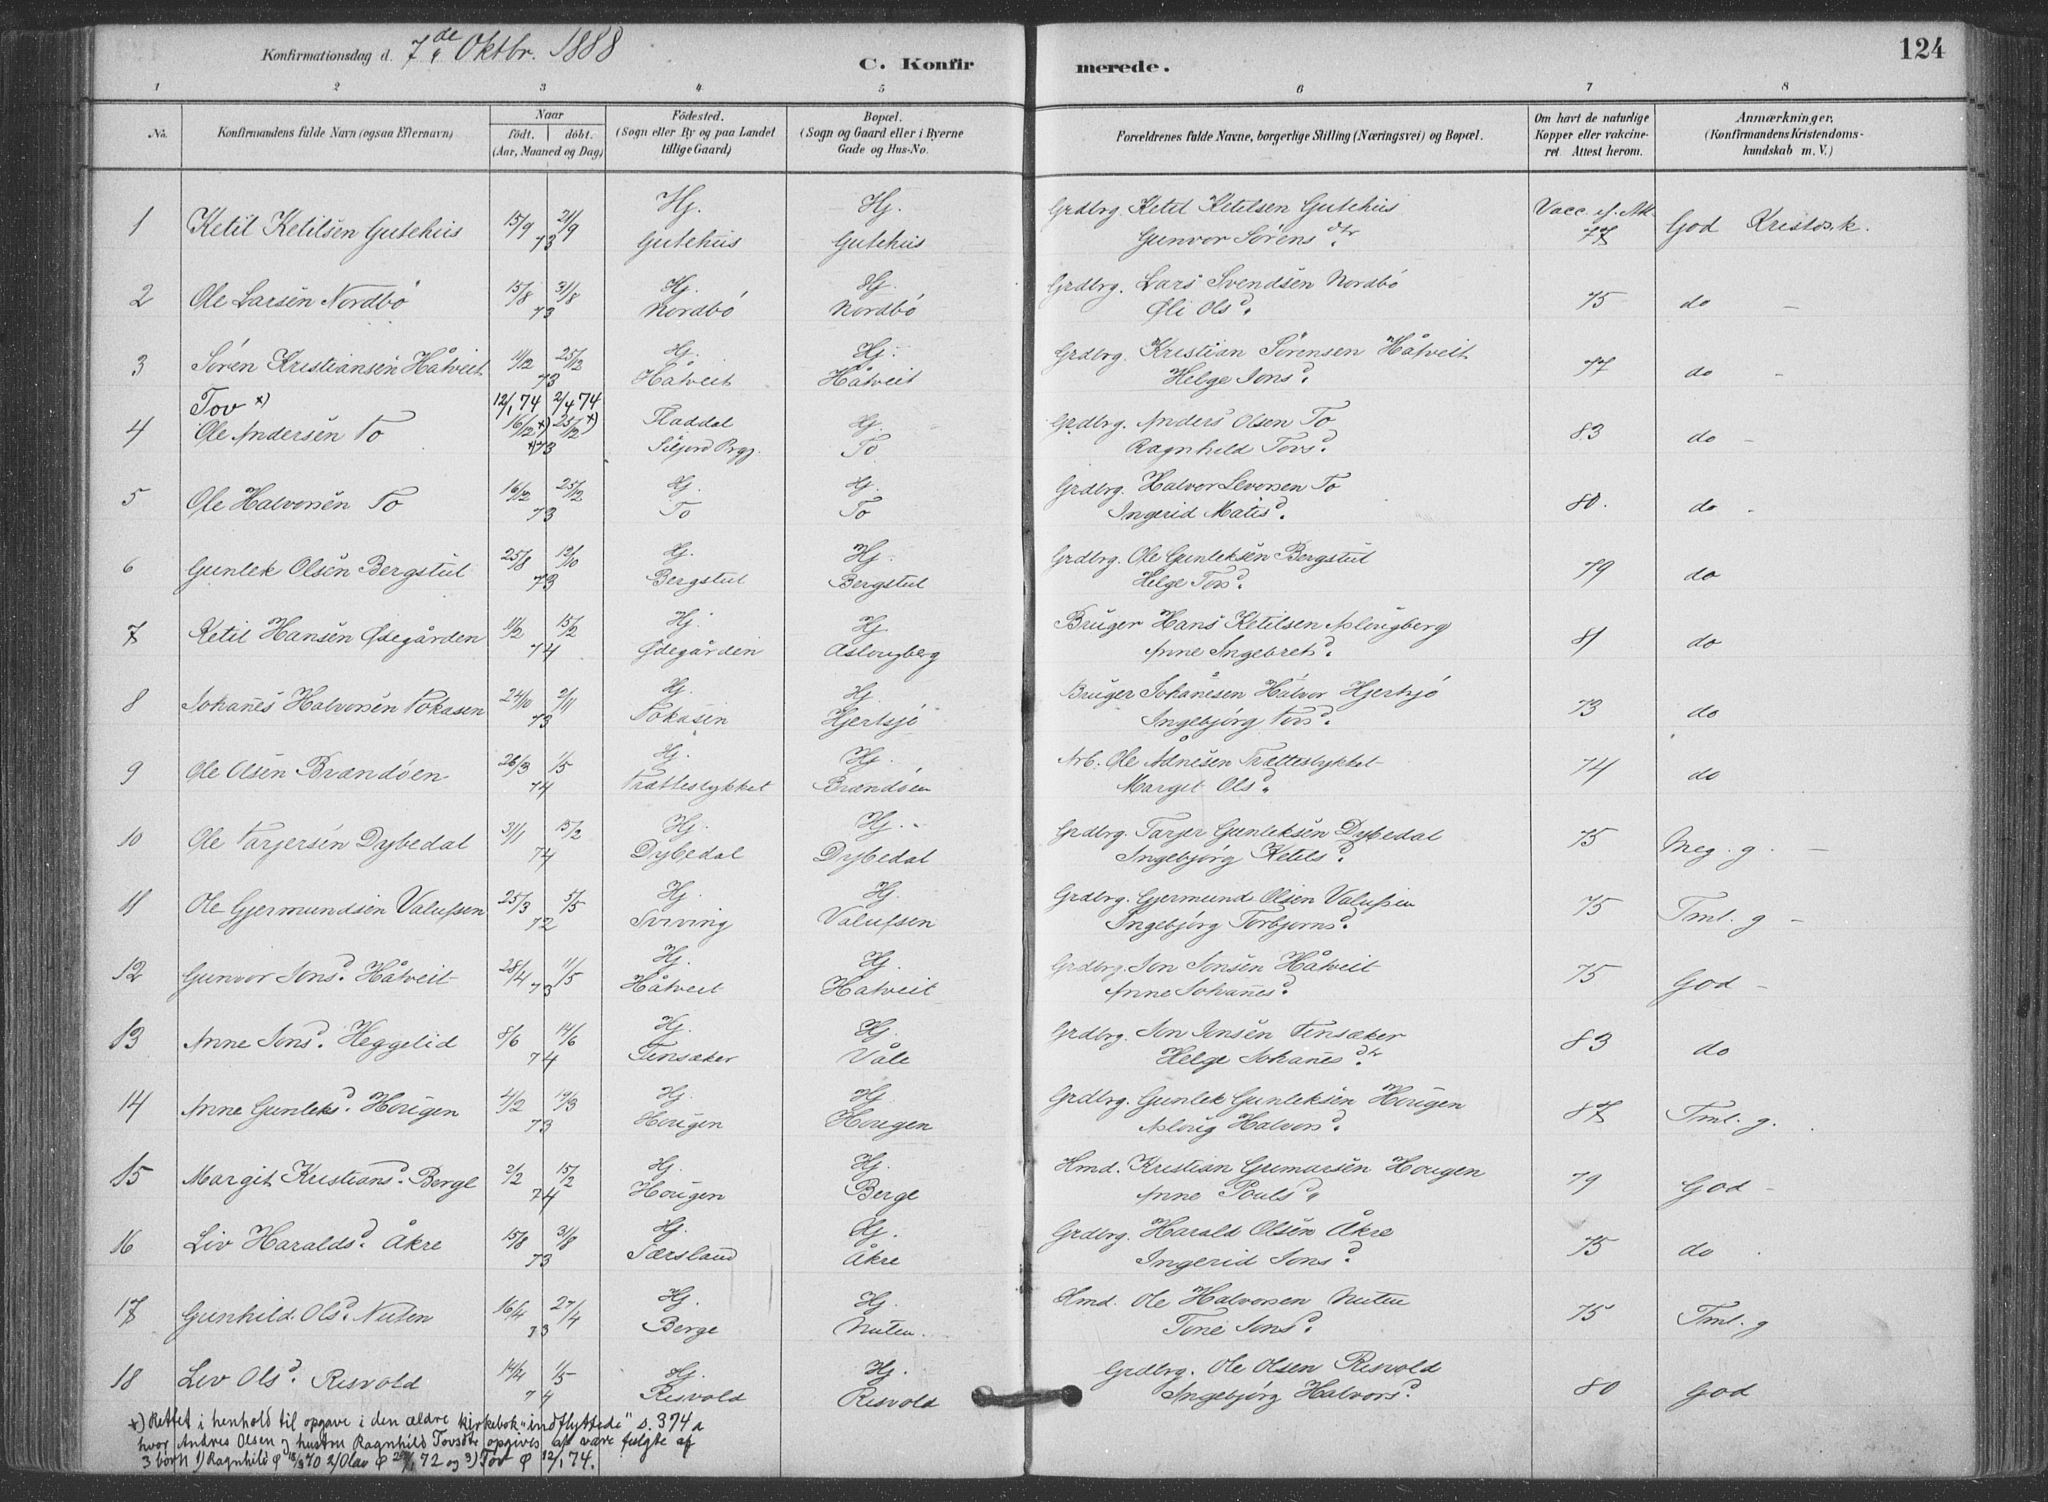 Konfirmationsdag d. 7de Oktbr. 1888
C. Konfirmerede.
124
1 2 3 4 5 6 7 8
No. Konfirmandens fulde Navn (ogsaa Efternavn) Naar født. døbt. (Aar, Maaned og Dag) Fødested. (Sogn eller By og paa Landet tillige Gaard) Bopæl. (Sogn og Gaard eller i Byerne Gade og Hus-No. Forældrenes fulde Navne, borgerlige Stilling (Næringsvei) og Bopæl. Om havt de naturlige Kopper eller vakcineret Attest herom. Anmærkninger, (Konfirmandens Kristendomskundskab m. V.)
1 Ketil Ketilsen Gutehus 15/9 21/9 73 Hj. Gutehus Hj. Gutehus Grdbrg. Ketil Ketilsen Gutehus Vacc. ef. Att. 77 God Kristdsk.
Gunvor Sørensdtr
2 Ole Larsen Nordbø 15/8 31/8 73 Hj. Nordbø Hj. Nordbø Grdbrg. Lars Svendsen Nordbø 75 do –
Øli Olsd.
3 Søren Kristiansen Håtveit 11/12 25/12 73 Hj. Håtveit Hj. Håtveit Grdbrg. Kristian Sørensen Håtveit 77 do –
Helge Jonsd.
Tov x) 12/1 74 2/4 74
4 Ole Andersen To 16/12 x) 25/12 x) x) 73 Fladdal Siljord Prgj. Hj. To Grdbrg. Anders Olsen To 83 do –
Ragnhild Tovsd.
5 Ole Halvorsen To 16/12 25/12 73 Hj. To Hj. To Grdbrg. Halvor Levorsen To 80. do –
Ingerid Matisd.
6 Gunlek Olsen Bergstul 25/8 19/10 73 Hj. Bergstul Hj. Bergstul Grdbrg. Ole Gunleksen Bergstul 79 do
Helge Torsd.
7 Ketil Hansen Ødegården 11/2 15/2 74 Hj. Ødegården Hj Aslougberg Bruger Hans Ketilsen Aslougberg 81 do
Anne Ingebretsd.
8 Johanes Halvorsen Tokasen 24/10 2/11 73 Hj. Tokasen Hj. Hjertsjø Bruger Johanesen Halvor Hjertsjø 73 do
Ingebjørg Tovsd.
9 Ole Olsen Brændøen 26/3 1/5 74 Hj. Trættestykket Hj. Brændøen Arb. Ole Adnesen Trættestykket 74 do
Margit Olsd.
10 Ole Tarjersen Dybedal 31/1 15/2 74 Hj. Dybedal Hj. Dybedal Grdbrg. Tarjer Gunleksen Dybedal 75 Meg. g. –
Ingebjørg Ketilsd.
11 Ole Gjermundsen Valufsen 25/3 5/5 72 Hj. Sviving Hj. Valufsen Grdbrg. Gjermund Olsen Valufsen 75 Tml. g –
Ingebjørg Torbjornsd.
12 Gunvor Jonsd. Håtveit 28/4 11/5 73 Hj. Håtveit Hj. Håtveit Grdbrg. Jon Jonsen Håtveit 75 God –
Anne Johanesd.
13 Anne Jonsd. Heggelid 8/6 14/6 74 Hj. Tinsæker Hj. Våle Grdbrg. Jon Jonsen Tinsæker 83 do
Helge Johanesdtr
14 Anne Gunleksd. Hougen 4/2 19/3 73 Hj. Hougen Hj. Hougen Grdbrg. Gunlek Gunleksen Hougen 87 Tml. g.
Asloug Halvorsd.
15 Margit Kristiansd. Berge 2/2 15/2 74 Hj. Hougen Hj. Berge Hmd. Kristian Gumarsen Hougen 79 God –
Anne Poulsd.
16 Liv Haraldsd. Åkre 15/8 31/8 73 Hj. Særsland Hj. Åkre Grdbrg. Harald Olsen Åkre 75 do
Ingerid Jonsd.
17 Gunhild Olsd. Nuten 16/4 27/4 73 Hj. Berge Hj. Nuten. Hmd. Ole Halvorsen Nuten 75 Tml. g
Tone Jonsd.
18 Liv Olsd. Risvold 14/4 1/5 74 Hj. Risvold Hj. Risvold Grdbrg. Ole Olsen Risvold 80 God
Ingebjørg Halvorsd.
x) Rettet i henhold til opgave i den ældre kirkebok "indflyttede" s. 374a
hvor Andres Olsen og hustru Ragnhild Tovsdtr opgives at være fulgte af
3 børn 1) Ragnhild ø 18/3 70 2) Olav ø 20/1 72 og 3) Tov ø 12/1 74.